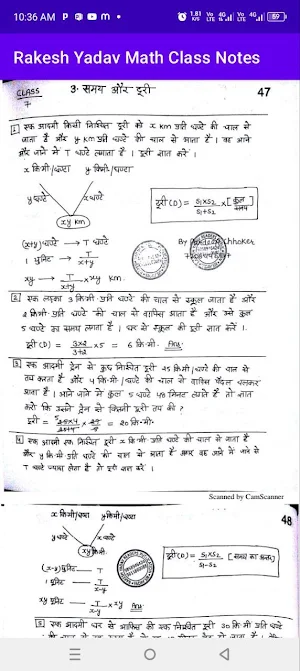 10:36 AM
1.81 K/S
Vo LTE
4G
Vo LTE
4G
59
Rakesh Yadav Math Class Notes
CLASS 7
3. समय और दूरी
47
1] एक आदमी किसी निश्चित दूरी को x km प्रति घण्टे की चाल से
जाता है और y km प्रति घण्टे की चाल से आता है । उसे आने
और जाने में T घण्टे लगता है । दूरी ज्ञात करें ।
x कि मी/घण्टा y कि मी/घण्टा
y घण्टे x घण्टे
xy km
दूरी (D) = S1×S2 / S1+S2 × [कुल समय]
(x+y) घण्टे → T घण्टे
1 यूनिट → T/x+y
xy → T/x+y × xy km.
By Chhoker
2] एक लड़का 3 कि मी प्रति घण्टे की चाल से स्कूल जाता है और
2 कि मी प्रति घण्टे की चाल से वापिस आता है और उसे कुल
5 घण्टे का समय लगता है । घर से स्कूल की दूरी ज्ञात करें ।
दूरी (D) = 3×2 / 3+2 × 5 = 6 कि.मी. Ans
3] एक आदमी ट्रेन से कुछ निश्चित दूरी 25 कि मी/घण्टे की चाल से
तय करता है और 4 कि.मी/घण्टे की चाल से वापिस पैदल चलकर
आता है । आने जाने में कुल 5 घण्टे 48 मिनट लगते हैं तो ज्ञात
करो कि उसने ट्रेन से कितनी दूरी तय की ?
दूरी = 25×4 / 25+4 × 29/5 = 20 कि.मी.
4] एक आदमी एक निश्चित दूरी x कि मी प्रति घण्टे की चाल से जाता है
और y कि मी प्रति घण्टे की चाल से आता है अगर वह आने में जाने से
T घण्टे ज्यादा लेता है तो दूरी ज्ञात करें ।
Scanned by CamScanner
48
x कि मी/घण्टा y कि मी/घण्टा
y घण्टे x घण्टे
xy कि मी.
दूरी (D) = S1×S2 / S1-S2 [समय का अन्तर]
(x-y) यूनिट — T
1 यूनिट — T/x-y
xy यूनिट — T/x-y × xy Ans
5] एक आदमी घर से आफिस की एक निश्चित दूरी 30 कि मी प्रति घण्टे